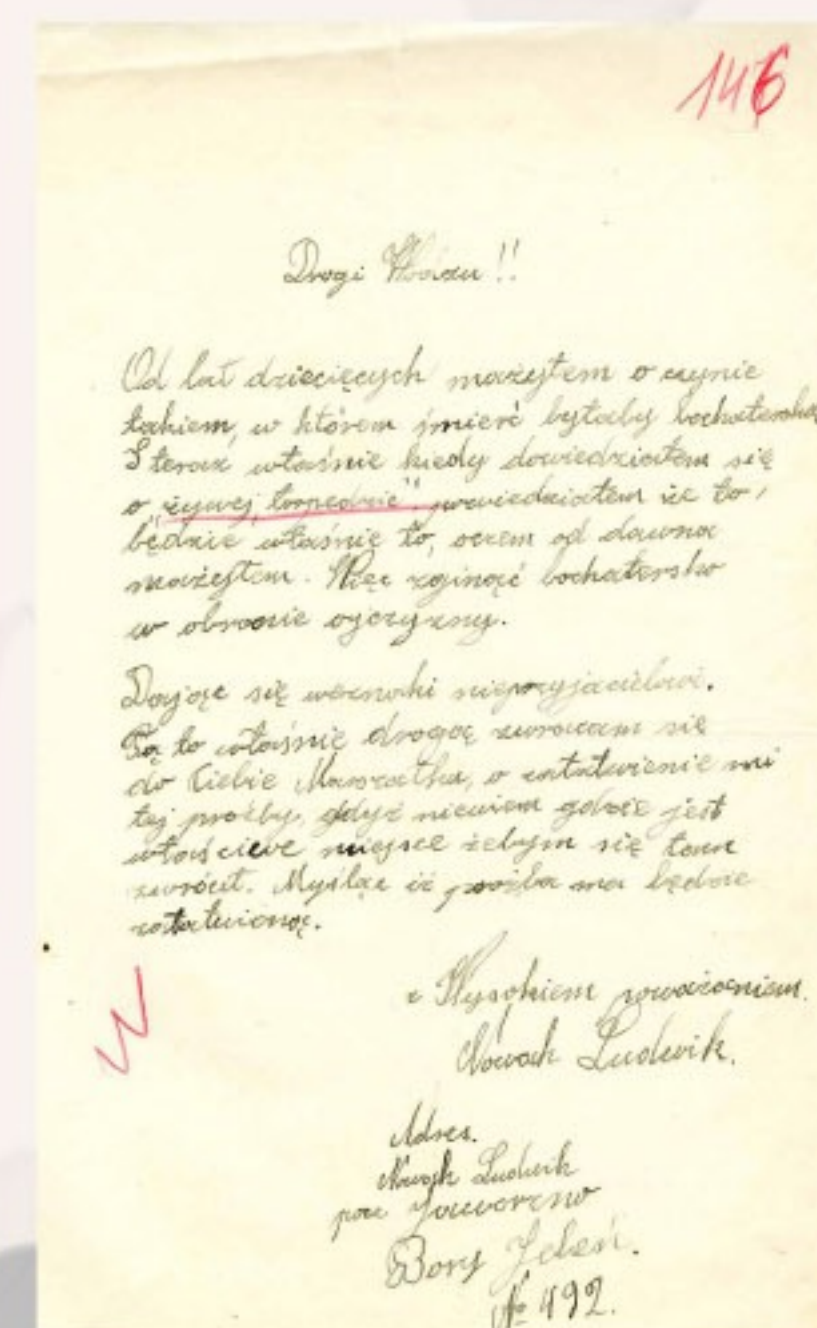 146
Drogi Wodzu!!
Od lat dziecięcych mażyłem o czynie
takiem, w którem śmierć byłaby bochaterską
I teraz właśnie kiedy dowiedziałem się
o "żywej torpedzie" powiedziałem że to
będzie właśnie to, oczem od dawna
mażyłem. Więc zginąć bochatersko
w obronie ojczyzny.
Dając się weznaki nieprzyjacielowi.
Tą to właśnie drogą zwracam się
do Ciebie Marszałku, o załatwienie mi
tej prośby, gdyż niewiem gdzie jest
właściwe miejsce żebym się tam
zwrócił. Myślę iż prośba ma będzie
załatwioną.
W
z Wysokiem poważaniem.
Nowak Ludwik.
Adres.
Nowak Ludwik
Jaworzno
Bory Jeleń.
№ 492.